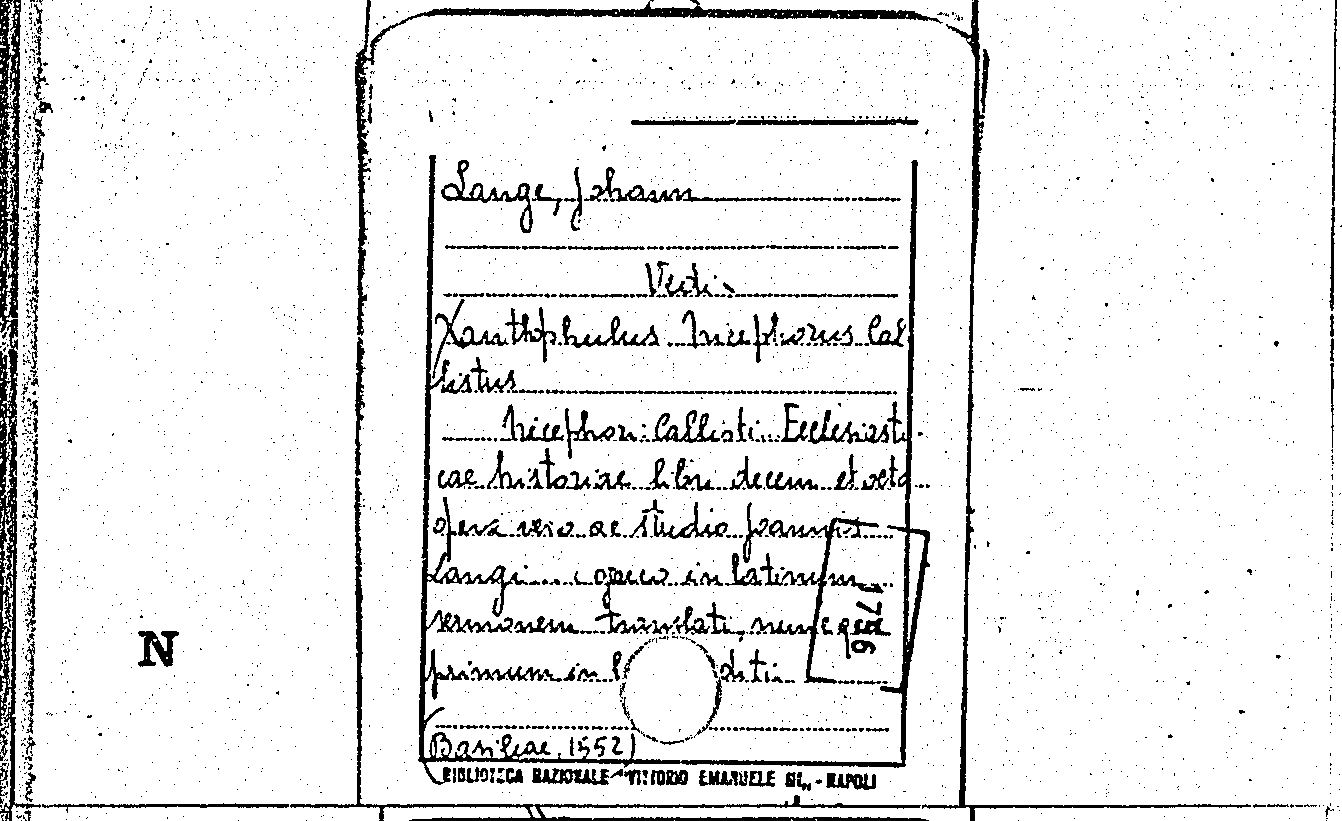 Lange, Johann
Vedi
Xanthopulus Nicephorus Cal
listus
Nicephori Callisti Ecclesiasti
cae historiae libri decem et octo
opera vero ac studio Joannis
Langi ... e graeco in latinum
sermonem translati, nunc
primum in
N
(Basileae, 1552)
BIBLIOTECA NAZIONALE "VITTORIO EMANUELE III" - NAPOLI